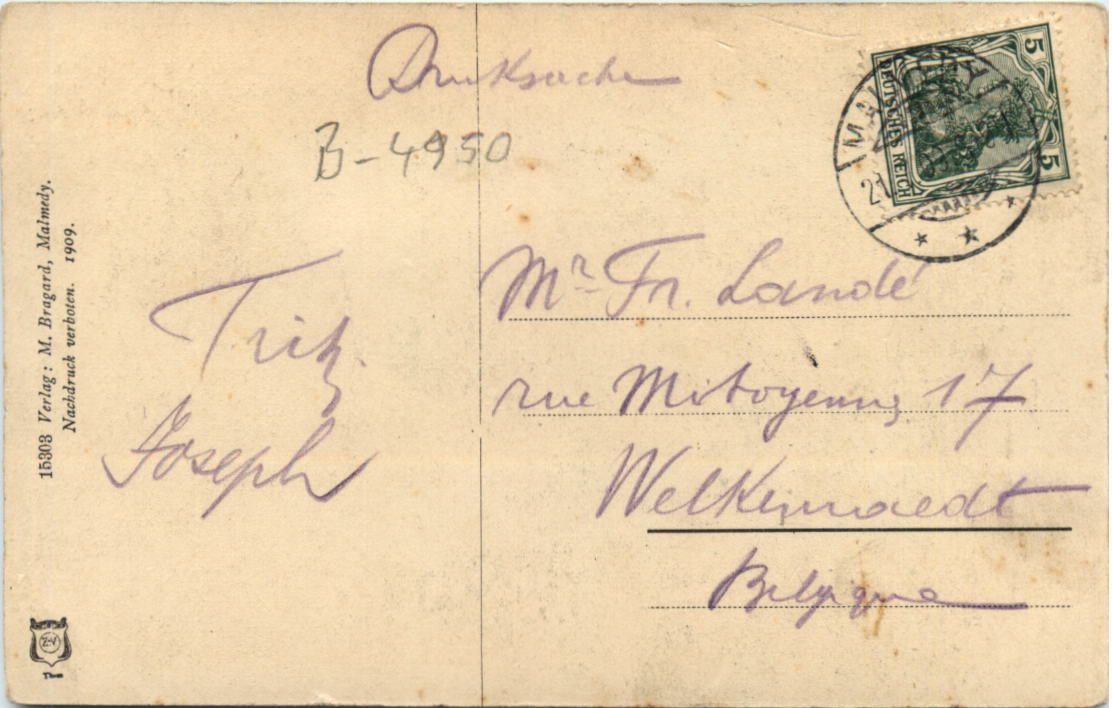 Drucksache
B-4950
5
DEUTSCHES REICH
5
MALMEDY
21.
Mr Fr. Landé
rue Mitoyenne 17
Welkenraedt
Belgique
Fritz.
Joseph
15303 Verlag: M. Bragard, Malmedy.
Nachdruck verboten. 1909.